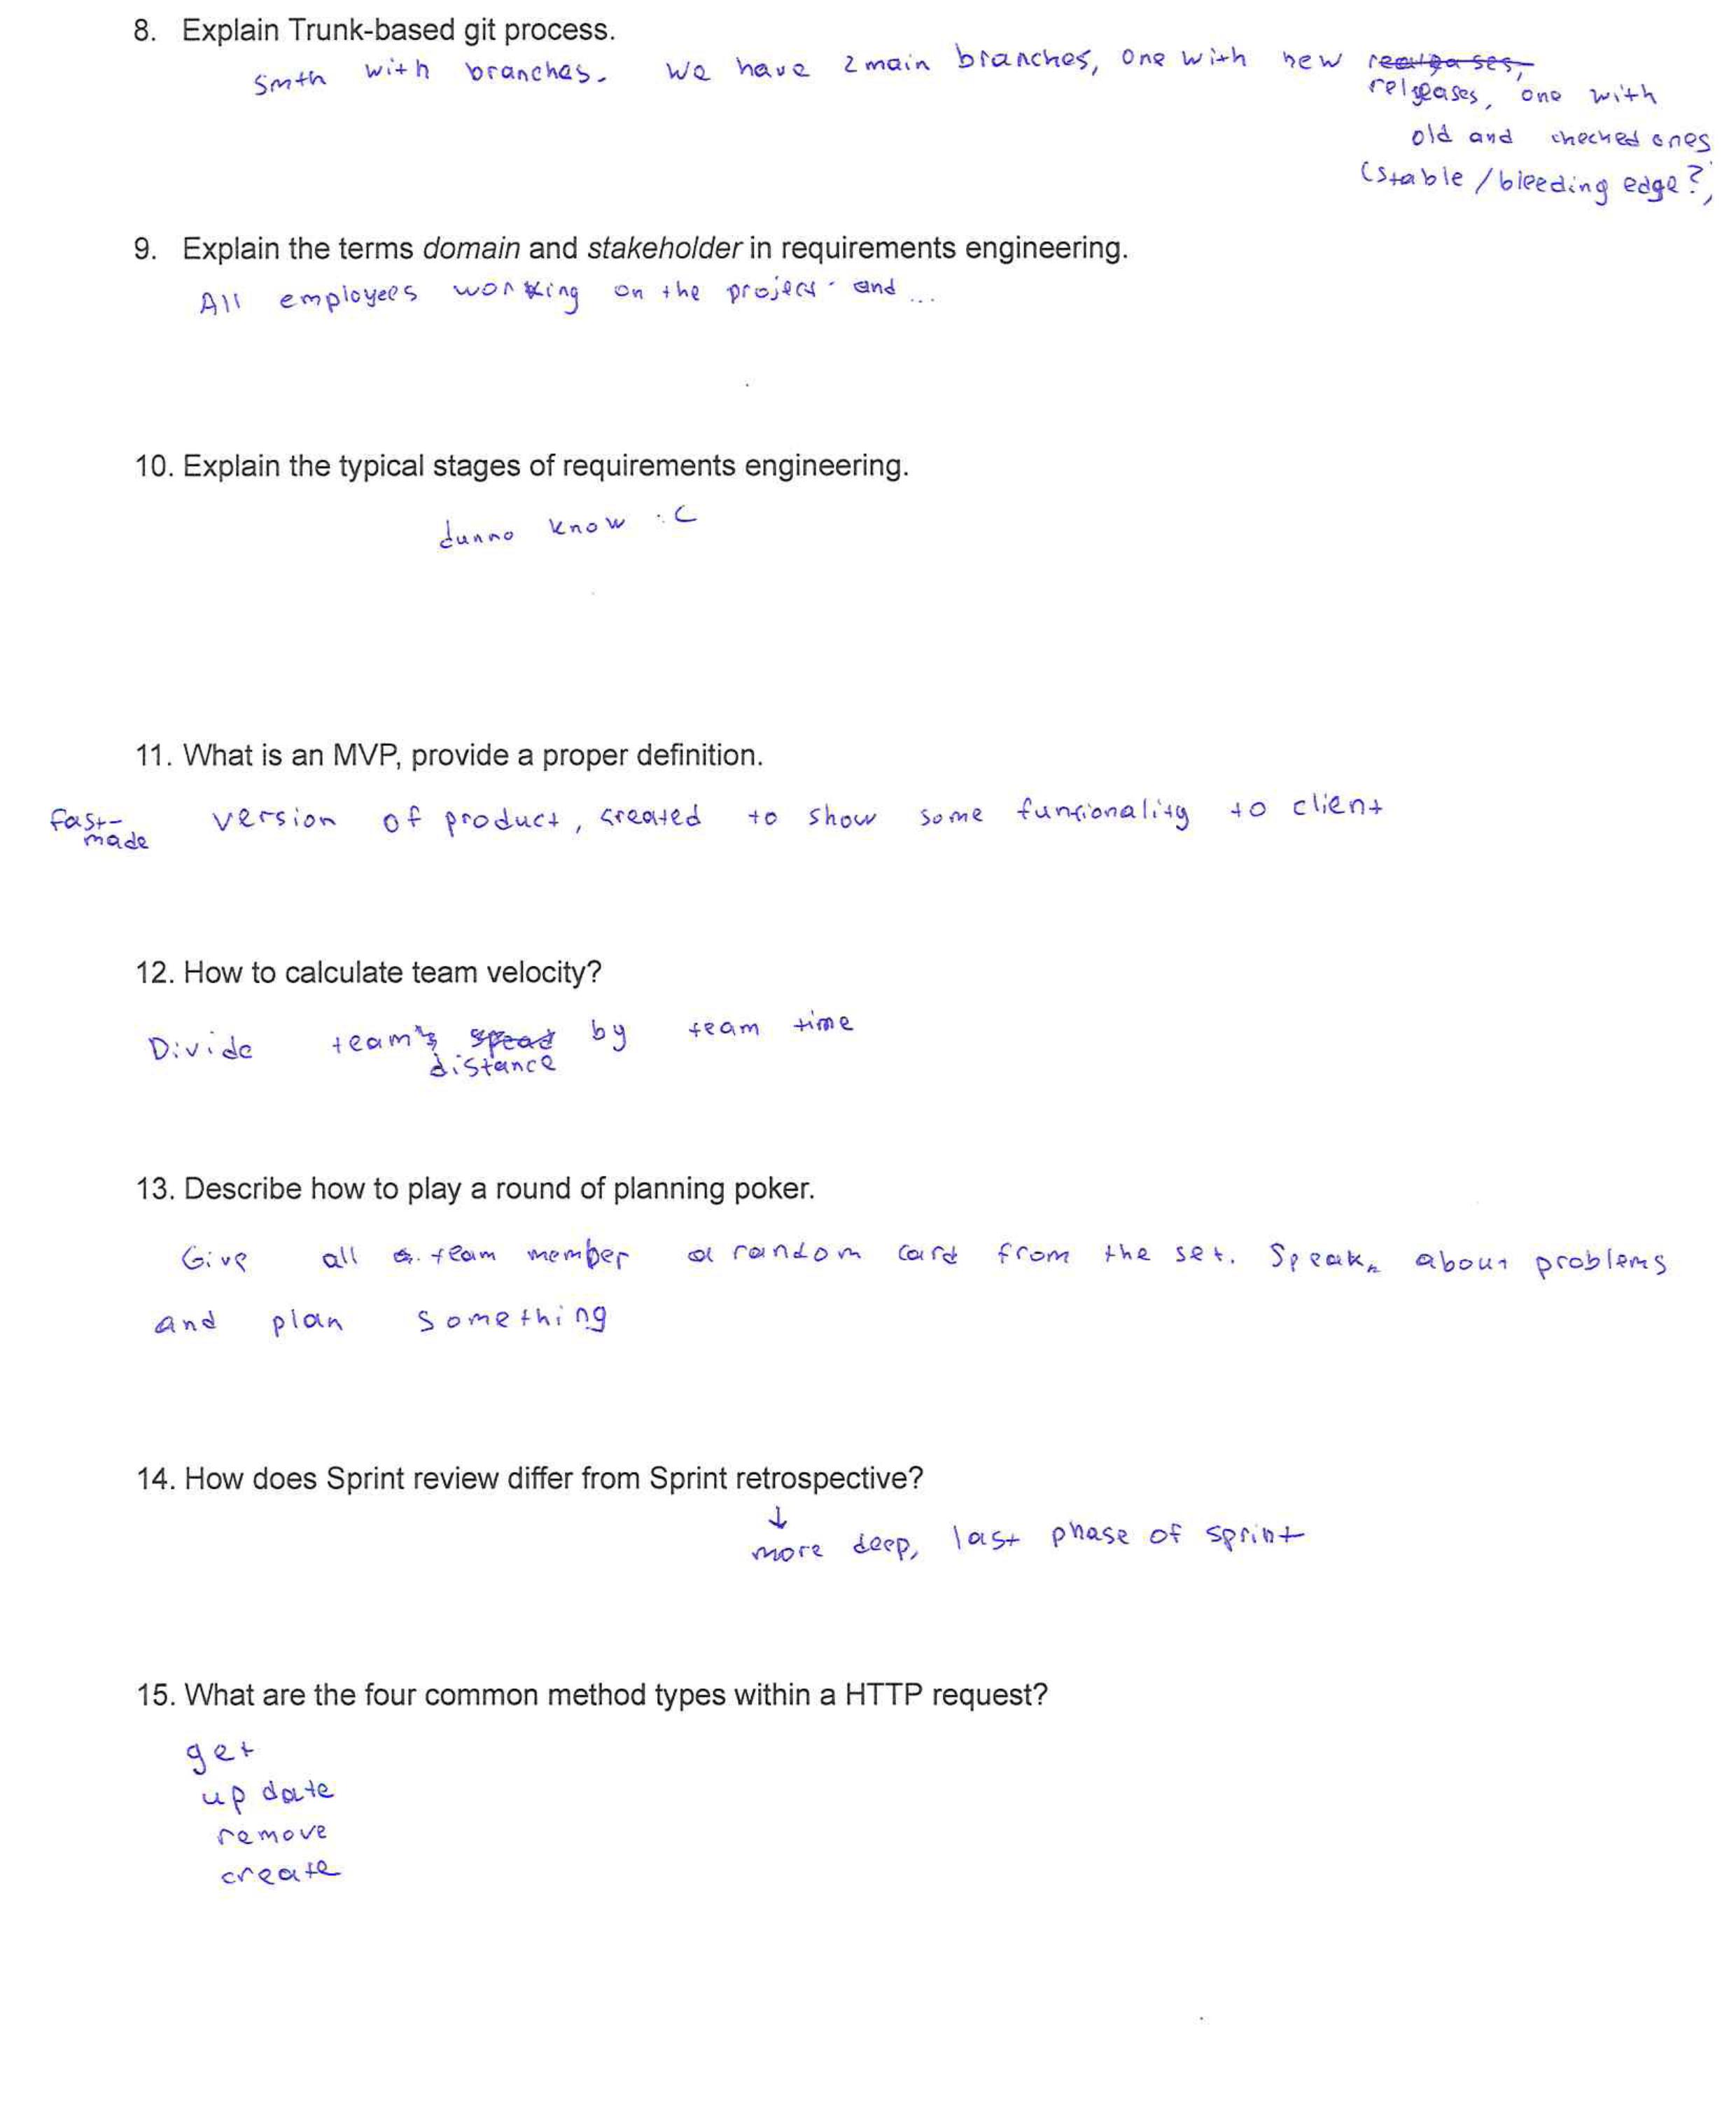 8. Explain Trunk-based git process.
smth with branches. We have 2 main branches, one with new
releases, one with
old and checked ones
(stable / bleeding edge?)
9. Explain the terms domain and stakeholder in requirements engineering.
All employees working on the project and ...
10. Explain the typical stages of requirements engineering.
dunno know :C
11. What is an MVP, provide a proper definition.
fast-made version of product, created to show some funcionality to client
12. How to calculate team velocity?
Divide team's distance by team time
13. Describe how to play a round of planning poker.
Give all team member a random card from the set. Speak about problems
and plan something
14. How does Sprint review differ from Sprint retrospective?
↓
more deep, last phase of sprint
15. What are the four common method types within a HTTP request?
get
update
remove
create